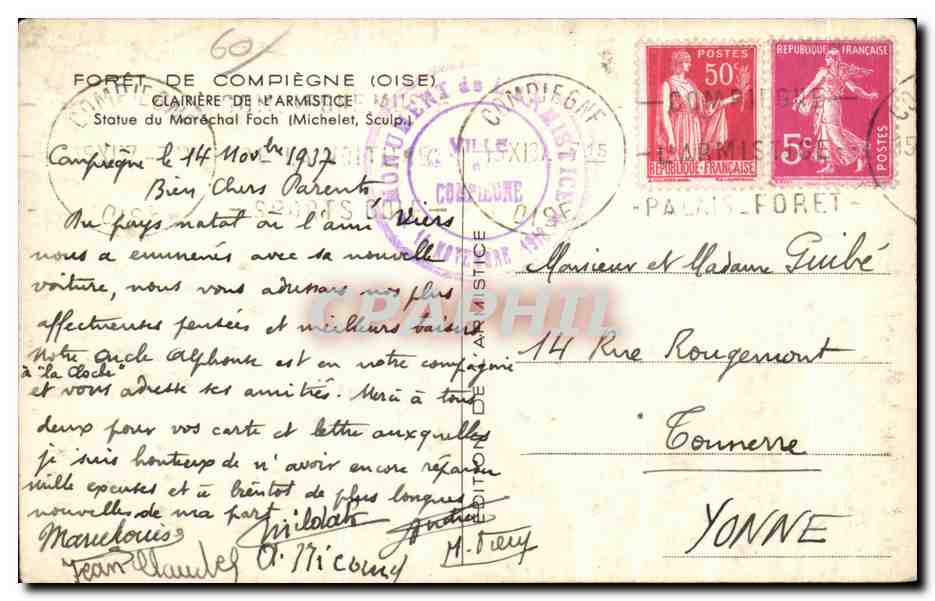 60/-
FORÊT DE COMPIÈGNE (OISE)
CLAIRIÈRE DE L'ARMISTICE
Statue du Maréchal Foch (Michelet, Sculp.)
Compiègne le 14 Novbre 1937
Bien Chers Parents
Au pays natal où l'ami Viers
nous a emmenés avec sa nouvelle
voiture, nous vous adressons nos plus
affectueuses pensées et meilleurs baisers
Notre oncle Alphonse est en notre compagnie
à "la Cloche"
et vous adresse ses amitiés. Merci à tous
deux pour vos carte et lettre auxquelles
je suis honteux de n'avoir encore répondu
mille excuses et à bientôt de plus longues
nouvelles de ma part.
Marielouis
André
Jean Claude
M. Viers
ÉDITION DE L'ARMISTICE
MONUMENT de L'ARMISTICE
VILLE
COMPIEGNE
11 NOVEMBRE 1918
COMPIEGNE
OISE
COMPIEGNE
L'ARMISTICE
-PALAIS-FORET-
POSTES
50c
REPUBLIQUE-FRANÇAISE
REPUBLIQUE FRANÇAISE
5c
POSTES
Monsieur et Madame Guibé
14 Rue Rougemont
Tonnerre
YONNE
CPAPHIL